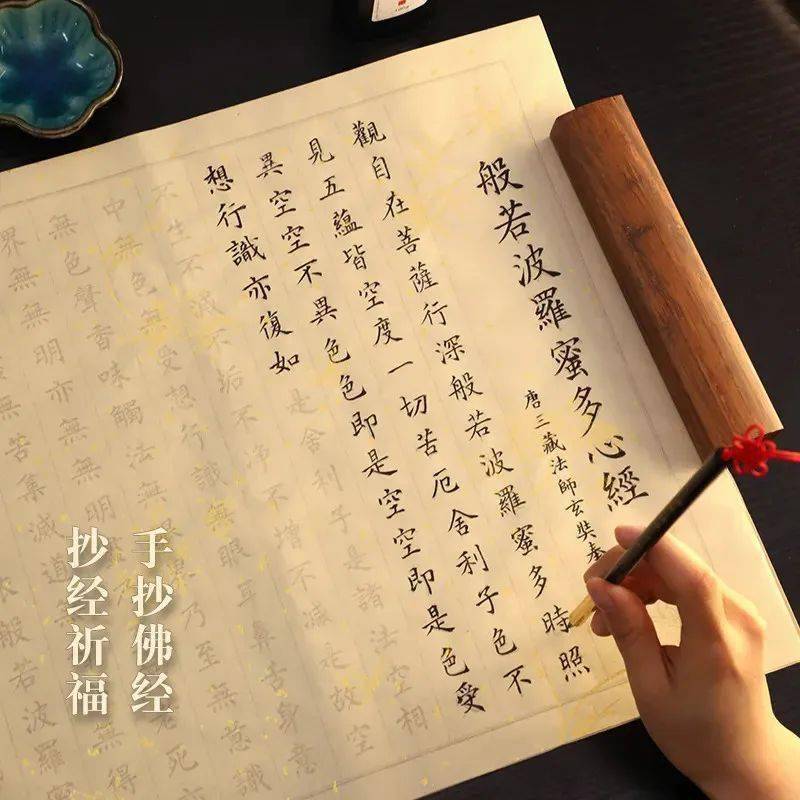 般若波羅蜜多心經
唐三藏法師玄奘奉
觀自在菩薩行深般若波羅蜜多時照
見五蘊皆空度一切苦厄舍利子色不
異空空不異色色即是空空即是色受
想行識亦復如是舍利子是諸法空相
不生不滅不垢不淨不增不減是故空
中無色無受想行識無眼耳鼻舌身意
無色聲香味觸法無界乃至無意識
界無無明亦無無明老死亦
無苦集滅道無得
般若波羅蜜
手抄佛经
抄经祈福